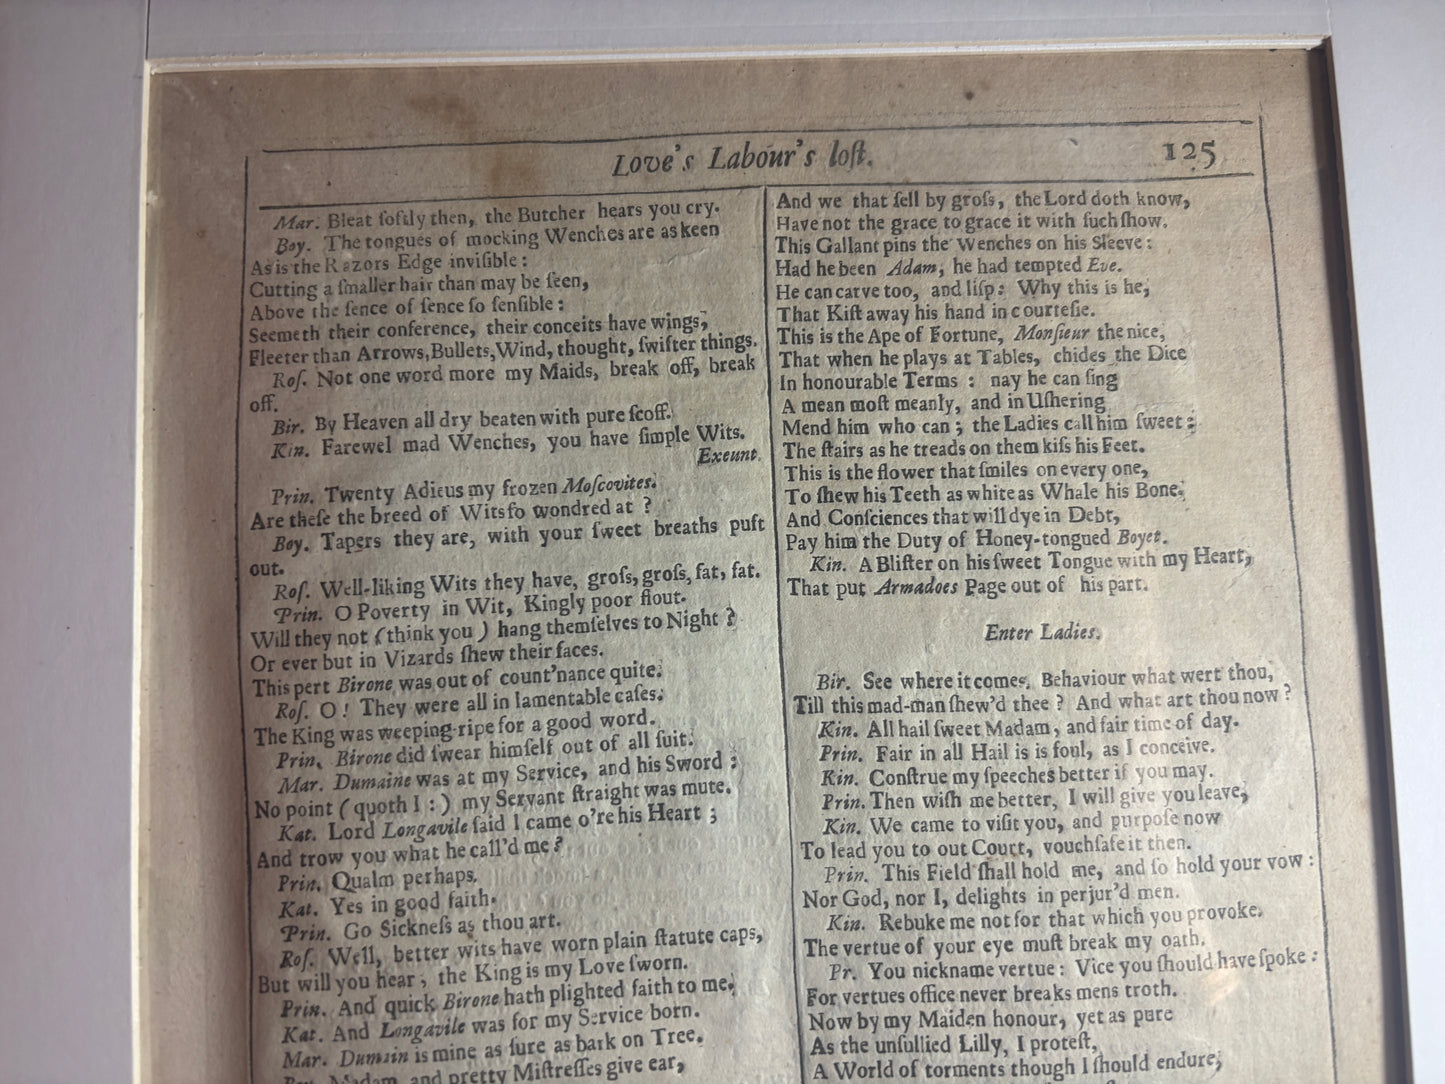 Love's Labour's loſt.
125
Mar. Bleat ſoftly then, the Butcher hears you cry.
Boy. The tongues of mocking Wenches are as keen
As is the Razors Edge inviſible:
Cutting a ſmaller hair than may be ſeen,
Above the ſence of ſence ſo ſenſible:
Seemeth their conference, their conceits have wings,
Fleeter than Arrows, Bullets, Wind, thought, ſwifter things.
Roſ. Not one word more my Maids, break off, break
off.
Bir. By Heaven all dry beaten with pure ſcoff.
Kin. Farewel mad Wenches, you have ſimple Wits.
Exeunt.
Prin. Twenty Adieus my frozen Moſcovites.
Are theſe the breed of Wits ſo wondred at ?
Boy. Tapers they are, with your ſweet breaths puft
out.
Roſ. Well-liking Wits they have, groſs, groſs, fat, fat.
Prin. O Poverty in Wit, Kingly poor flout.
Will they not (think you) hang themſelves to Night ?
Or ever but in Vizards ſhew their faces.
This pert Birone was out of count'nance quite.
Roſ. O ! They were all in lamentable caſes.
The King was weeping-ripe for a good word.
Prin. Birone did ſwear himſelf out of all ſuit.
Mar. Dumaine was at my Service, and his Sword :
No point (quoth I :) my Servant ſtraight was mute.
Kat. Lord Longavile ſaid I came o're his Heart ;
And trow you what he call'd me ?
Prin. Qualm perhaps.
Kat. Yes in good faith.
Prin. Go Sickneſs as thou art.
Roſ. Well, better wits have worn plain ſtatute caps,
But will you hear, the King is my Love ſworn.
Prin. And quick Birone hath plighted faith to me.
Kat. And Longavile was for my Service born.
Mar. Dumain is mine as ſure as bark on Tree.
Madam, and pretty Miſtreſſes give ear,
And we that ſell by groſs, the Lord doth know,
Have not the grace to grace it with ſuch ſhow.
This Gallant pins the Wenches on his Sleeve :
Had he been Adam, he had tempted Eve.
He can carve too, and liſp: Why this is he,
That Kiſt away his hand in courteſie.
This is the Ape of Fortune, Monſieur the nice,
That when he plays at Tables, chides the Dice
In honourable Terms : nay he can ſing
A mean moſt meanly, and in Uſhering
Mend him who can ; the Ladies call him ſweet :
The ſtairs as he treads on them kiſs his Feet.
This is the flower that ſmiles on every one,
To ſhew his Teeth as white as Whale his Bone.
And Conſciences that will dye in Debt,
Pay him the Duty of Honey-tongued Boyet.
Kin. A Bliſter on his ſweet Tongue with my Heart,
That put Armadoes Page out of his part.
Enter Ladies.
Bir. See where it comes. Behaviour what wert thou,
Till this mad-man ſhew'd thee ? And what art thou now ?
Kin. All hail ſweet Madam, and fair time of day.
Prin. Fair in all Hail is is foul, as I conceive.
Kin. Conſtrue my ſpeeches better if you may.
Prin. Then wiſh me better, I will give you leave,
Kin. We came to viſit you, and purpoſe now
To lead you to out Court, vouchſafe it then.
Prin. This Field ſhall hold me, and ſo hold your vow :
Nor God, nor I, delights in perjur'd men.
Kin. Rebuke me not for that which you provoke.
The vertue of your eye muſt break my oath.
Pr. You nickname vertue: Vice you ſhould have ſpoke :
For vertues office never breaks mens troth.
Now by my Maiden honour, yet as pure
As the unſullied Lilly, I proteſt,
A World of torments though I ſhould endure,